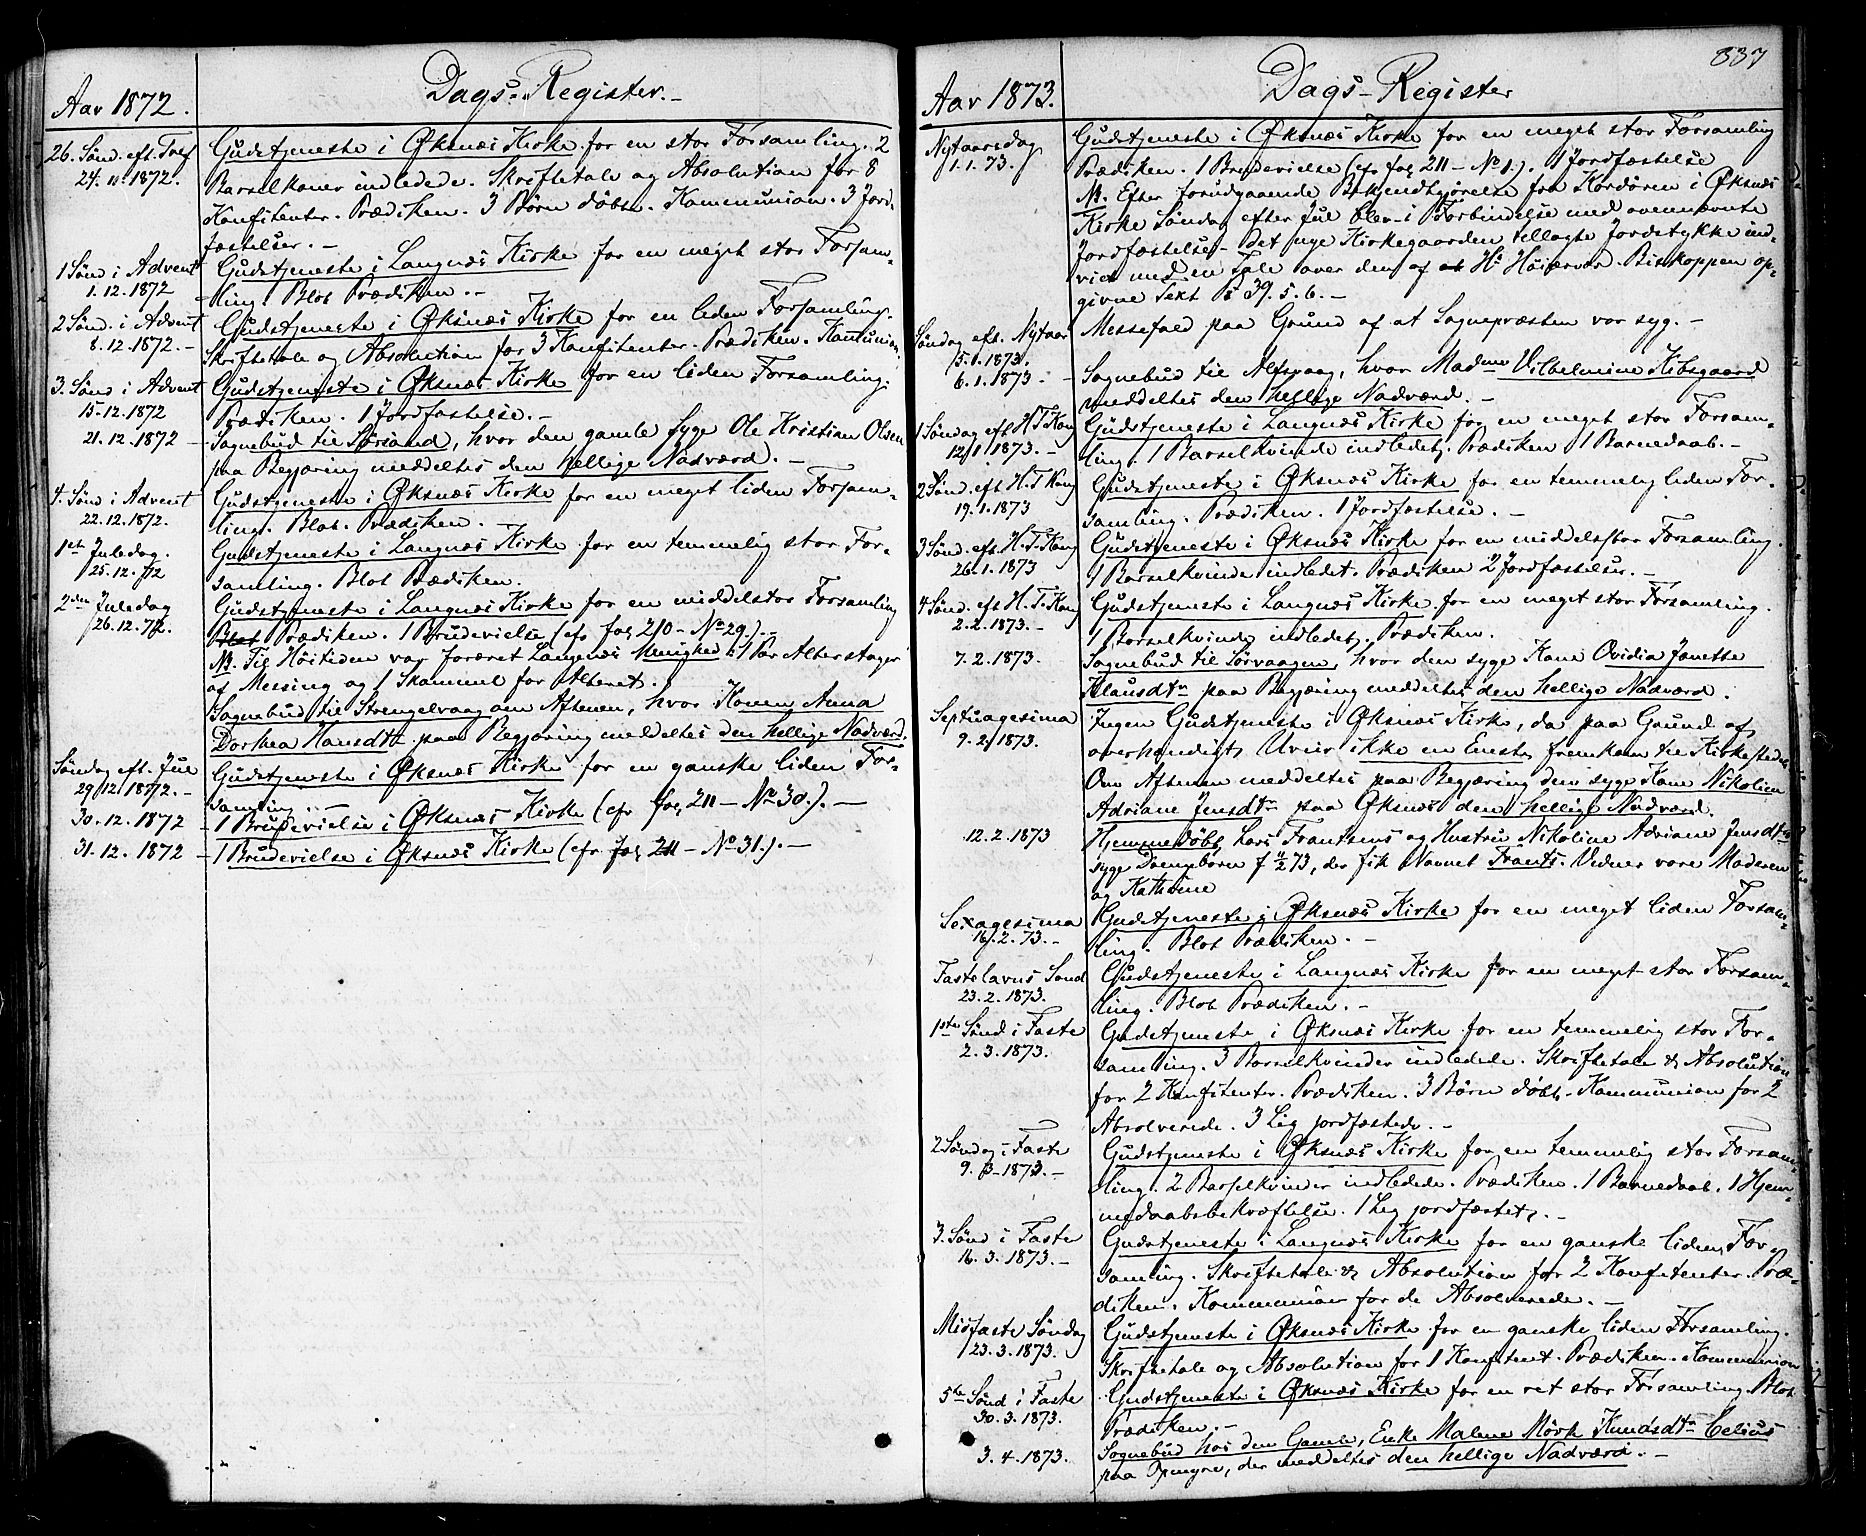 Aar 1872.
Dags-Register.-
26. Sønd. eft. Tref
24. 11. 1872.
Gudstjeneste i Øksnæs Kirke for en stor Forsamling. 2
Barselkoner indledede. Skriftetale og Absolution for 8
Konfitenter. Prædiken. 3 Børn døbte. Kommunion. 3 Jord-
fæstelser. -
1 Sønd i Advent
1. 12. 1872
Gudstjeneste i Langnæs Kirke for en meget stor Forsam-
ling. Blot Prædiken. -
2 Sønd. i Advent
8. 12. 1872. -
Gudstjeneste i Øksnæs Kirke for en liden Forsamling.
Skriftetale og Absolution for 3 Konfitenter. Prædiken. Kommunion.
3. Sønd i Advent
15. 12. 1872
Gudstjeneste i Øksnæs Kirke for en liden Forsamling.
Prædiken. 1 Jordfæstelse. -
21. 12. 1872 -
Sognebud til Sørsand, hvor den gamle syge Ole Kristian Olsen
paa Begjæring meddeltes den hellige Nadværd. -
4. Sønd i Advent
22. 12. 1872.
Gudstjeneste i Øksnæs Kirke for en meget liden Forsam-
ling. Blot Prædiken.
1ste Juledag.
25. 12. 72
Gudstjeneste i Langnæs Kirke for en temmelig stor For-
samling. Blot Prædiken.
2den Juledag
26. 12. 72.
Gudstjeneste i Langnæs Kirke for en middelstor Forsamling
Blot Prædiken. 1 Brudevielse (cfr fol 210 - No 29.). -
NB. Til Høitiden var foræret Langenæs Menighed: 1 Par Alterstager
af Messing og 1 Skammel for Alteret.
Sognebud til Strengelvaag om Aftenen, hvor Konen Anna
Dorthea Hansdtr paa Begjæring meddeltes den hellige Nadværd.
Søndag eft. Jul
29. 12. 1872. -
Gudstjeneste i Øksnæs Kirke for en ganske liden For-
samling. -
30. 12. 1872
- 1 Brudevielse i Øksnæs Kirke (cfr fol 211 - No 30.). -
31. 12. 1872
- 1 Brudevielse i Øksnæs Kirke (cfr fol 211 - No 31.). -
337
Aar 1873.
Dags-Register
Nytaarsdag
1. 1. 73.
Gudstjeneste i Øksnæs Kirke for en meget stor Forsamling
Prædiken. 1 Brudevielse (cfr fol 211 - No 1.). 1 Jordfæstelse
NB. Efter forudgaaende Bekjendtgjørelse fra Kordøren i Øksnæs
Kirke Søndag efter Jul blev - i Forbindelse med ovennævnte
Jordfæstelse - det nye Kirkegaarden tillagte Jordstykke ind-
viet med en Tale over den af Hr Høiærvær. Biskoppen op-
givne Text Ps 39. 5. 6. -
Søndag eft. Nytaar
5. 1. 1873.
Messefald paa Grund af at Sognepræsten var syg. -
6. 1. 1873. -
Sognebud til Alsvaag, hvor Madme Vilhelmine Kibsgaard
meddeltes den hellige Nadværd. -
1 Søndag eft H. T. Kong
12. 1. 1873. -
Gudstjeneste i Langnæs Kirke for en meget stor Forsam-
ling. 1 Barselkvinde indledet. Prædiken 1 Barnedaab. -
2 Sønd. eft H. T Kong
19. 1. 1873
Gudstjeneste i Øksnæs Kirke for en temmelig liden For-
samling. Prædiken. 1 Jordfæstelse. -
3 Sønd. eft. H. T. Kong
26. 1. 1873
Gudstjeneste i Øksnæs Kirke for en middelstor Forsamling.
1 Barselkvinde indledet. Prædiken 2 Jordfæstelser. -
4 Sønd. eft H. T. Kong
2. 2. 1873. -
Gudstjeneste i Langnæs Kirke for en meget stor Forsamling.
1 Barselkvinde indledet. Prædiken.
7. 2. 1873.
Sognebud til Sørvaagen, hvor den syge Kone Ovidia Janette
Klausdtr paa Begjæring meddeltes den hellige Nadværd.
Septuagesima
9. 2. 1873.
Ingen Gudstjeneste i Øksnæs Kirke, da paa Grund af
overhændigt Uveir ikke en Eneste fremkom til Kirkestedet.
Om Aftenen meddeltes paa Begjæring den syge Kone Nikoline
Adriane Jensdtr paa Øksnæs den hellige Nadværd.
12. 2. 1873
Hjemmedøbt Lars Frantsens og Hustru Nikoline Adriane Jensdtrs
syge Drengebarn f 4/2 73, der fik Navnet Frants. Vidner vare Moderen
og Kathrine
Sexagesima
16. 2. 73. -
Gudstjeneste i Øksnæs Kirke for en meget liden Forsam-
ling. Blot Prædiken. -
Fastelavns Sønd
23. 2. 1873.
Gudstjeneste i Langnæs Kirke for en meget stor Forsam-
ling. Blot Prædiken. -
1ste Sønd i Faste
2. 3. 1873.
Gudstjeneste i Øksnæs Kirke for en temmelig stor For-
samling. 3 Barselkvinder indledede. Skriftetale & Absolution
for 2 Konfitenter. Prædiken. 3 Børn døbt. Kommunion for 2
Absolverede. 3 Lig jordfæstede. -
2 Søndag i Faste
9. 3. 1873. -
Gudstjeneste i Øksnæs Kirke for en temmelig stor Forsam-
ling. 2 Barselkvinder indledede. Prædiken. 1 Barnedaab. 1 Hjem-
medaabsbekræftelse. 1 Lig jordfæstet. -
3. Sønd i Faste
16. 3. 1873. -
Gudstjeneste i Langnæs Kirke for en ganske liden For-
samling. Skriftetale & Absolution for 2 Konfitenter. Præ-
diken. Kommunion for de Absolverede. -
Midfaste Søndag
23. 3. 1873.
Gudstjeneste i Øksnæs Kirke for en ganske liden Forsamling.
Skriftetale og Absolution for 1 Konfitent. Prædiken. Kommunion
5te Sønd i Faste
30. 3. 1873.
Gudstjeneste i Øksnæs Kirke for en ret stor Forsamling. Blot
Prædiken. -
3. 4. 1873.
Sognebud hos den Gamle, Enke Malene Mörk Knudsdtr Celius
paa Opmyre, der meddeltes den hellige Nadværd. -